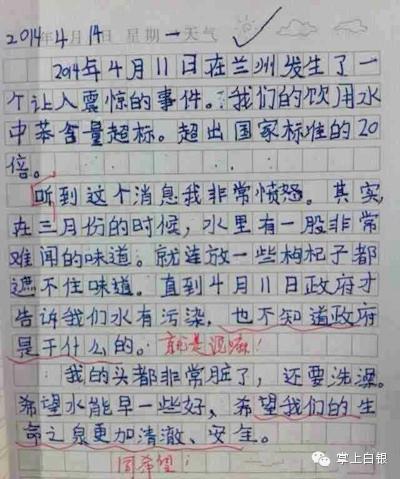 2014年4月14日 星期一 天气
2014年4月11日在兰州发生了一
个让人震惊的事件。我们的饮用水
中苯含量超标。超出国家标准的20
倍。
听到这个消息我非常愤怒。其实,
在三月份的时候,水里有一股非常
难闻的味道。就连放一些枸杞子都
遮不住味道。直到4月11日政府才
告诉我们水有污染,也不知道政府
是干什么的。就是
我的头都非常脏了,还要洗澡。
希望水能早一些好,希望我们的生
命之泉更加清澈、安全。
同希望!
掌上白银